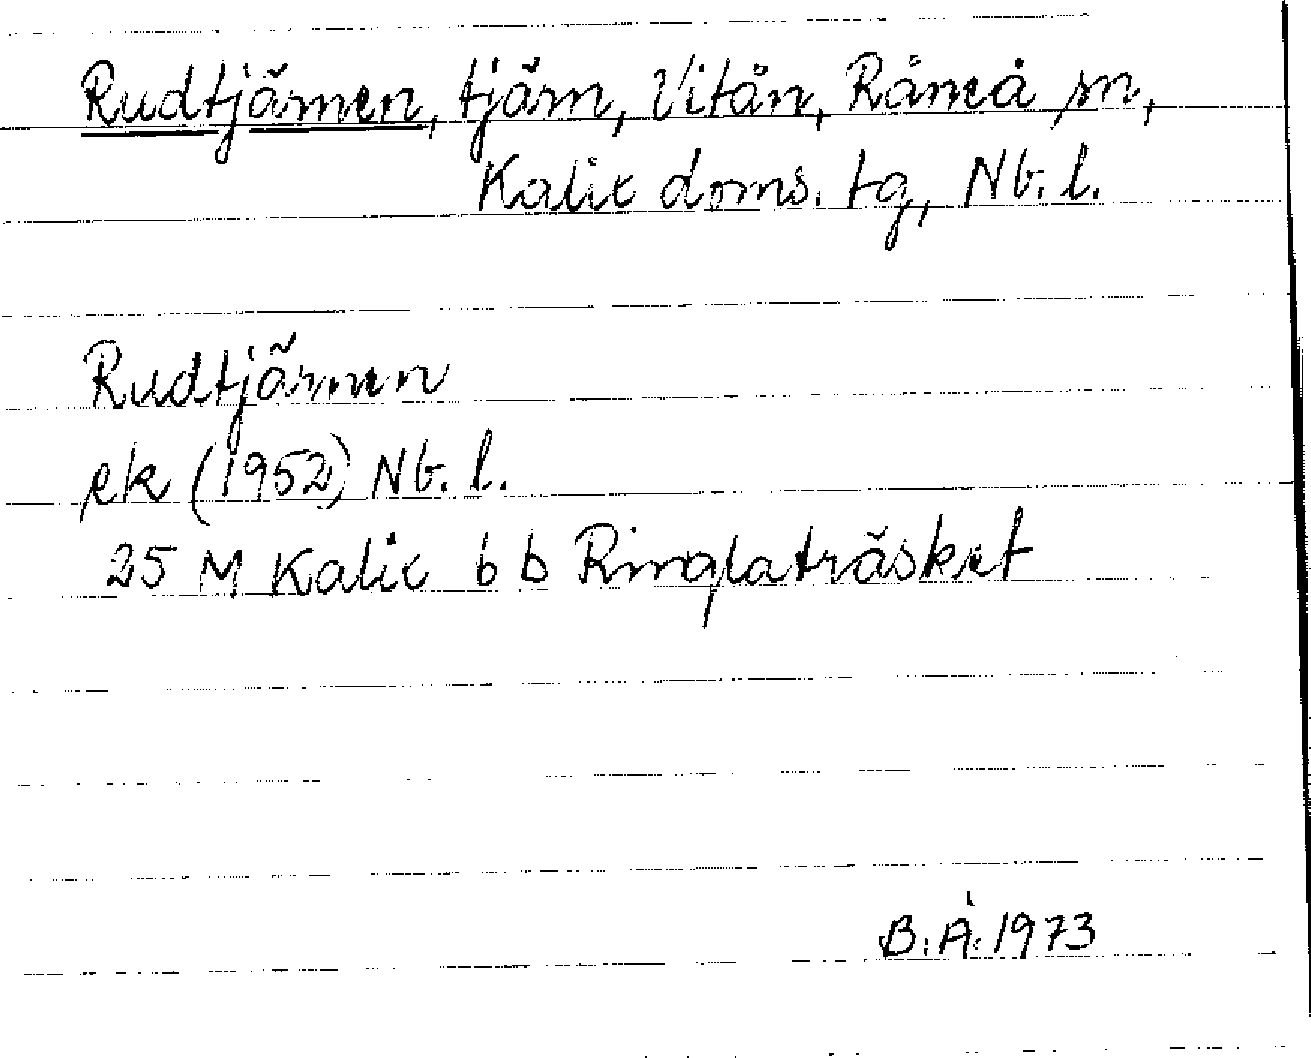 Rudtjärnen, tjärn, Vitån, Råneå sn,
Kalix doms. tg, Nb. l.
Rudtjärnen
ek (1952) Nb. l.
25 M Kalix 6 b Ringlaträsket
B. Å. 1973